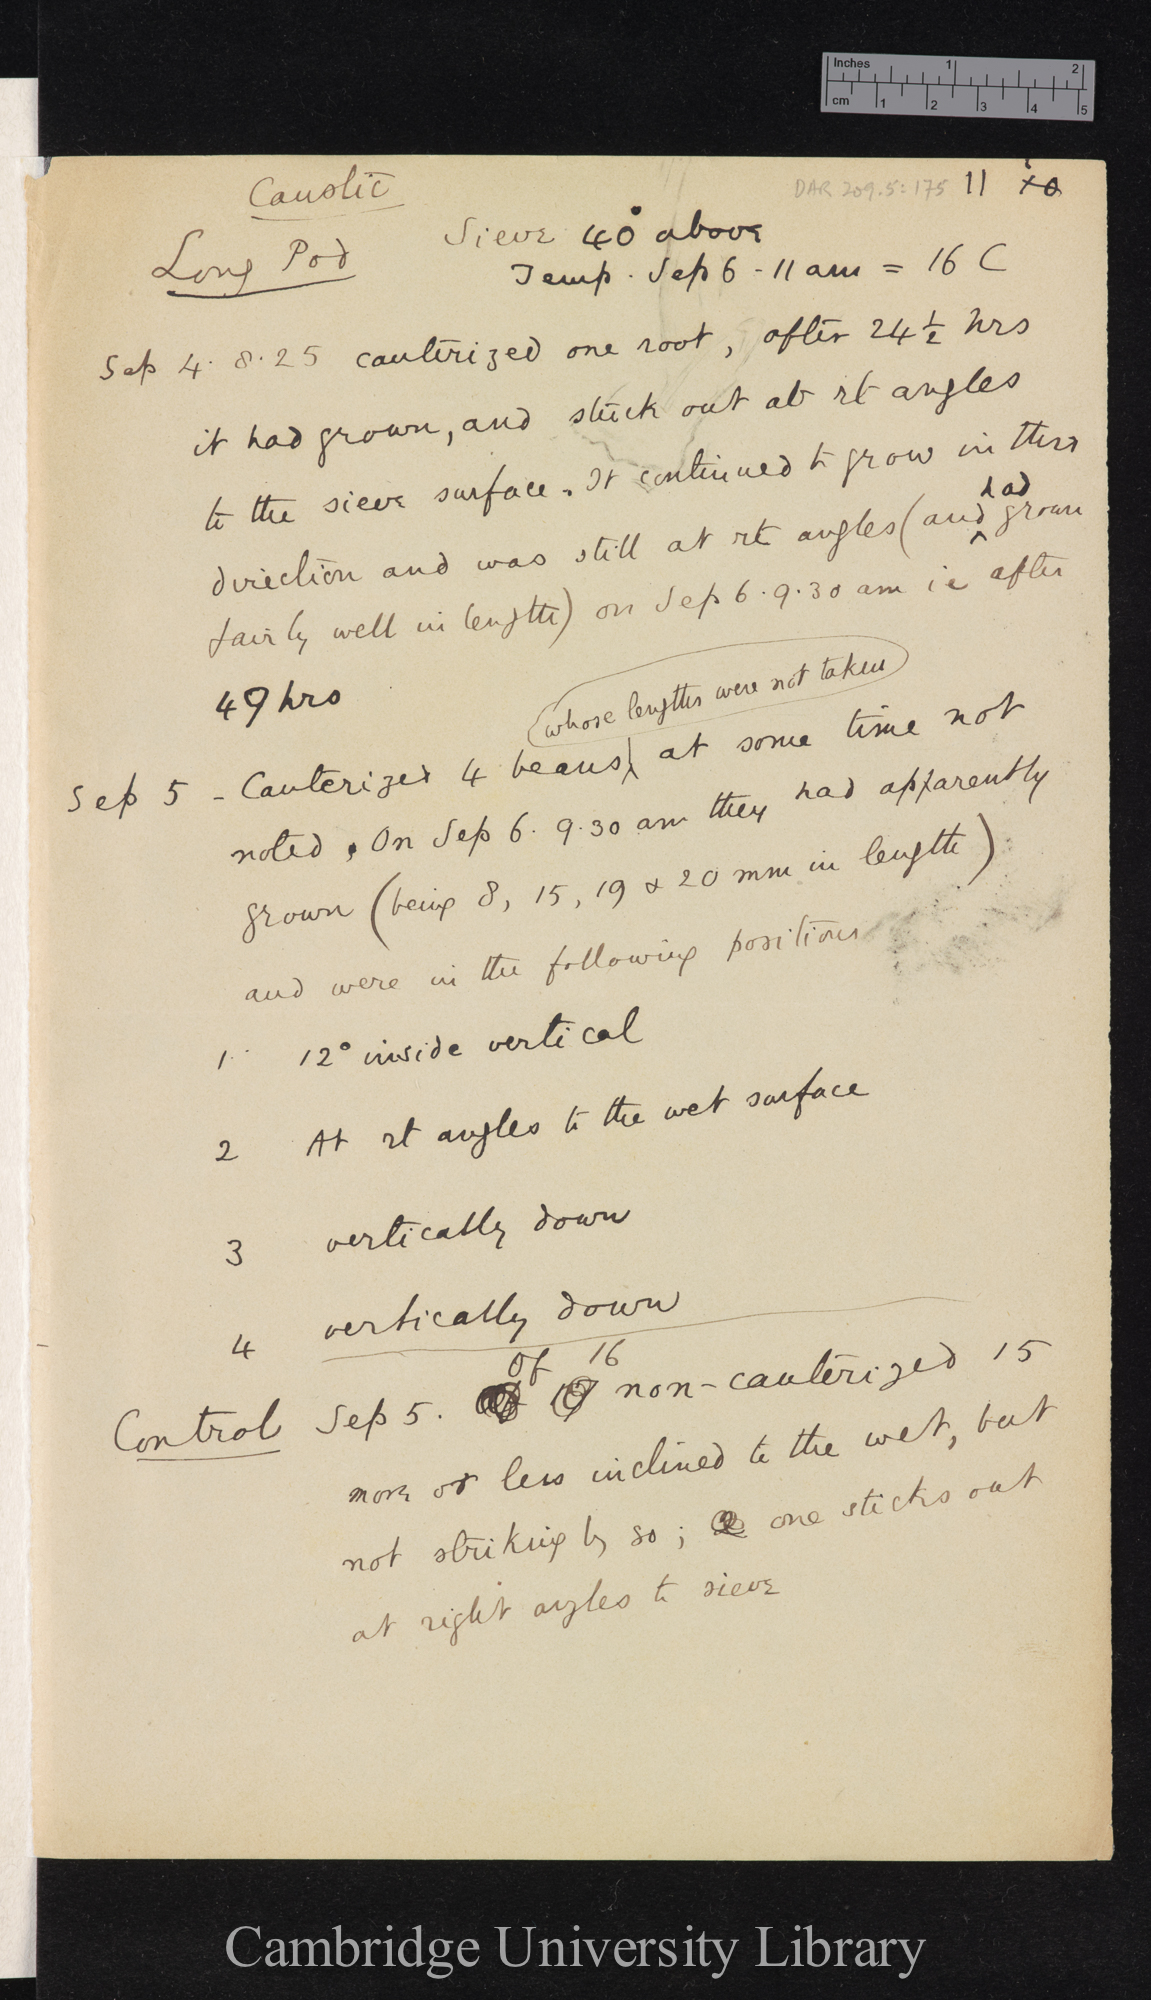 Inches 1 2
cm 1 2 3 4 5
DAR 209.5:175 11
Caustic
Sieve 40° above
Long Pod
Temp. Sep 6 - 11 am = 16 C
Sep 4. 8.25 cauterized one root, after 24½ hrs
it had grown, and stuck out at rt angles
to the sieve surface. It continued to grow in this
direction and was still at rt angles (and had grown
fairly well in length) on Sep 6. 9.30 am ie after
49 hrs
whose lengths were not taken
Sep 5 - Cauterized 4 beans, at some time not
noted. On Sep 6. 9.30 am they had apparently
grown (being 8, 15, 19 & 20 mm in length)
and were in the following positions
1. 12° inside vertical
2 At rt angles to the wet surface
3 vertically down
4 vertically down
Control Sep 5. Of 16 non-cauterized 15
more or less inclined to the wet, but
not strikingly so; one sticks out
at right angles to sieve
Cambridge University Library